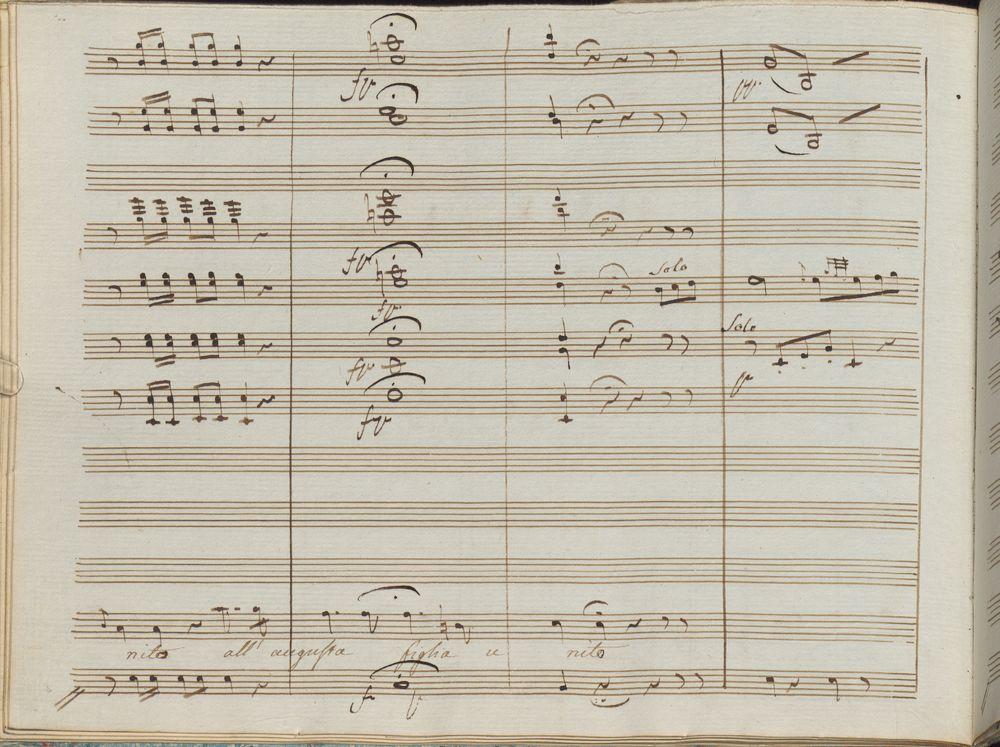 fp
p
fp
fp
Solo
fp
Solo
fp
p
fp
nito all' augusta figlia u nito
f p